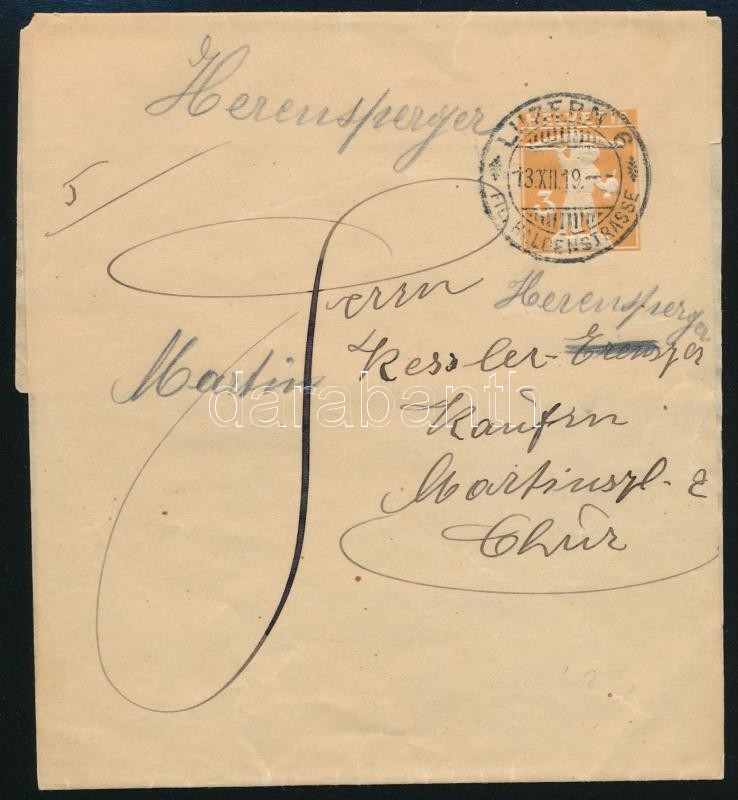 Herensperger
5
LUZERN 6
13.XII.19.-1
HALDENSTRASSE
3
Herrn
Herensperger
Kessler-
Martin
Kaufm
Martinspl. 2
Chur
darabanth